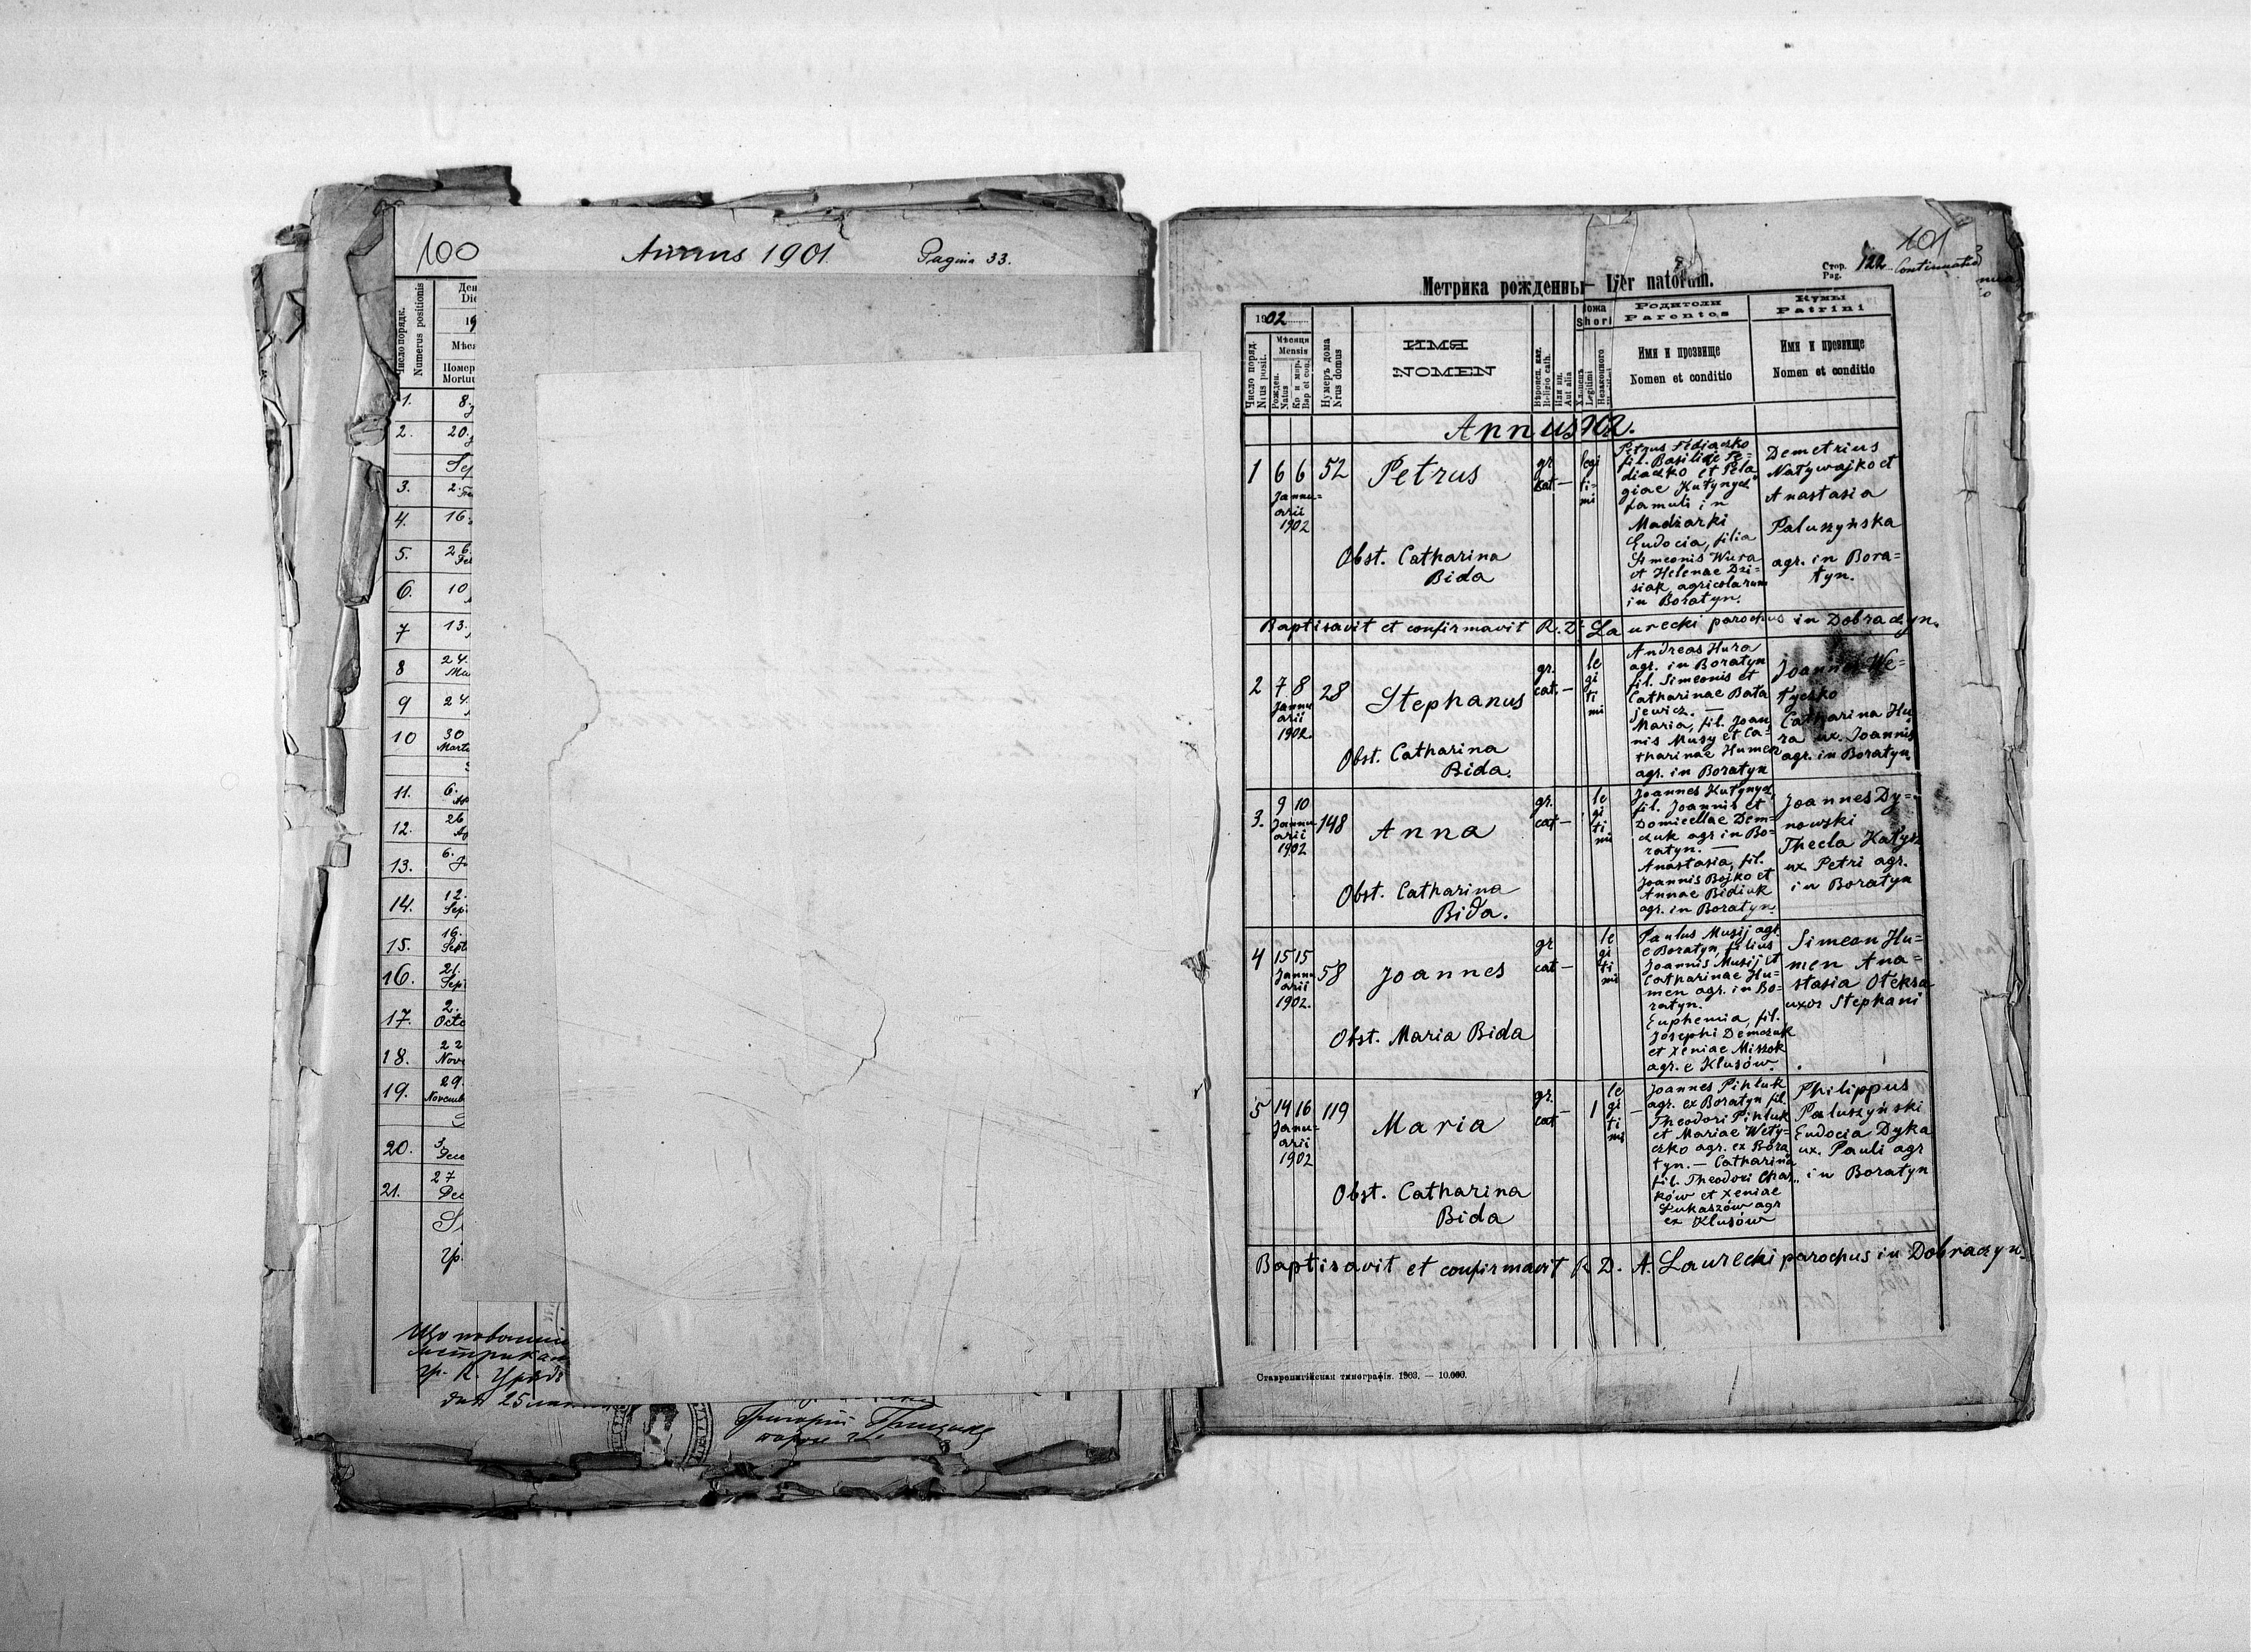 100
Annus 1901.
Pagina 33.
Число порядк.
Numerus positionis
1. 8.
2. 20.
3. 2.
4. 16.
5. 26.
6. 10
7 13.
8 24.
9 24.
10 30
11. 6.
12. 26
13. 6.
14. 12.
Sept
15. 16.
Sept
16. 21.
Sept
17. 2.
Octo
18. 22
Nove
19. 29.
Novemb
20. 3.
Dece
21. 27
Dec
101
Стор. 122 Continuatio
Pag.
Метрика рожденны — Liber natorum.
1902
Ложа
Thori
Родители
Parentes
Кумы
Patrini
Число поряд.
Nrus posit.
Мѣсяця
Mensis
Рожден.
Natus
Кр. и мир.
Bap et con.
Нумеръ дома
Nrus domus
ИМЯ
NOMEN
Religio cath.
Или ин.
Aut alia
Legitimi
Имя и прозвище
Nomen et conditio
Имя и прозвище
Nomen et conditio
Annus 1902.
1 6 6 52 Petrus
Januarii
1902
gr. cat. —
legitimi
Petrus Fediaczko
fil. Basilii Fe=
diaczko et Pela
giae Hutynycz
famuli in
Madziarki
Eudocia, filia
Simeonis Wura
et Helenae Dzi=
siak agricolarum
in Boratyn.
Demetrius
Natywajko et
Anastasia
Paluszyńska
agr. in Bora=
tyn.
Obst. Catharina
Bida
Baptisavit et confirmavit R. D. Laurecki parochus in Dobraczyn.
2 7 8 28 Stephanus
Januarii
1902.
gr. cat. —
legitimi
Andreas Hura
agr. in Boratyn
fil. Simeonis et
Catharinae Bata
jewicz. —
Maria, fil. Joan
nis Musy et Ca=
tharinae Humen
agr. in Boratyn
Joannes We=
tyczko
Catharina Hu
ra ux. Joannis
agr. in Boratyn
Obst. Catharina
Bida.
3. 9 10 148 Anna
Januarii
1902
gr. cat. —
legitimi
Joannes Hutynycz,
fil. Joannis et
Domicellae Dem=
czuk agr in Bo=
ratyn. —
Anastasia, fil.
Joannis Bojko et
Annae Bidiuk
agr. in Boratyn.
Joannes Dy=
nowski
Thecla Hatysz
ux. Petri agr.
in Boratyn
Obst. Catharina
Bida.
4 15 15 58 Joannes
Januarii
1902.
gr cat —
legitimi
Paulus Musij agr.
e Boratyn, filius
Joannis Musij et
Catharinae Hu=
men agr. in Bo=
ratyn.
Euphemia, fil.
Josephi Demczuk
et Xeniae Miszok
agr. e Klusów.
Simeon Hu=
men Ana=
stasia Oteksa
uxor Stephani
Obst. Maria Bida
5 14 16 119 Maria
Januarii
1902
gr. cat —
1 legitimi —
Joannes Pihluk
agr. ex Boratyn fil.
Theodori Pihluk
et Mariae Wety=
czko agr. ex Bora
tyn. — Catharina
fil. Theodori Char
ków et Xeniae
Łukaszów agr
ex Klusów
Philippus
Paluszyński
Eudocia Dyka
ux. Pauli agr
in Boratyn
Obst. Catharina
Bida
Baptisavit et confirmavit R. D. A. Laurecki parochus in Dobraczyn.
Ставропигійская типографія. 1903. — 10.000.